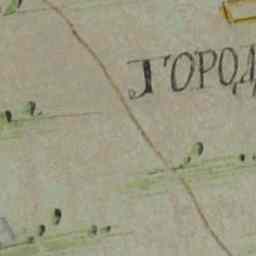 ГОРОД